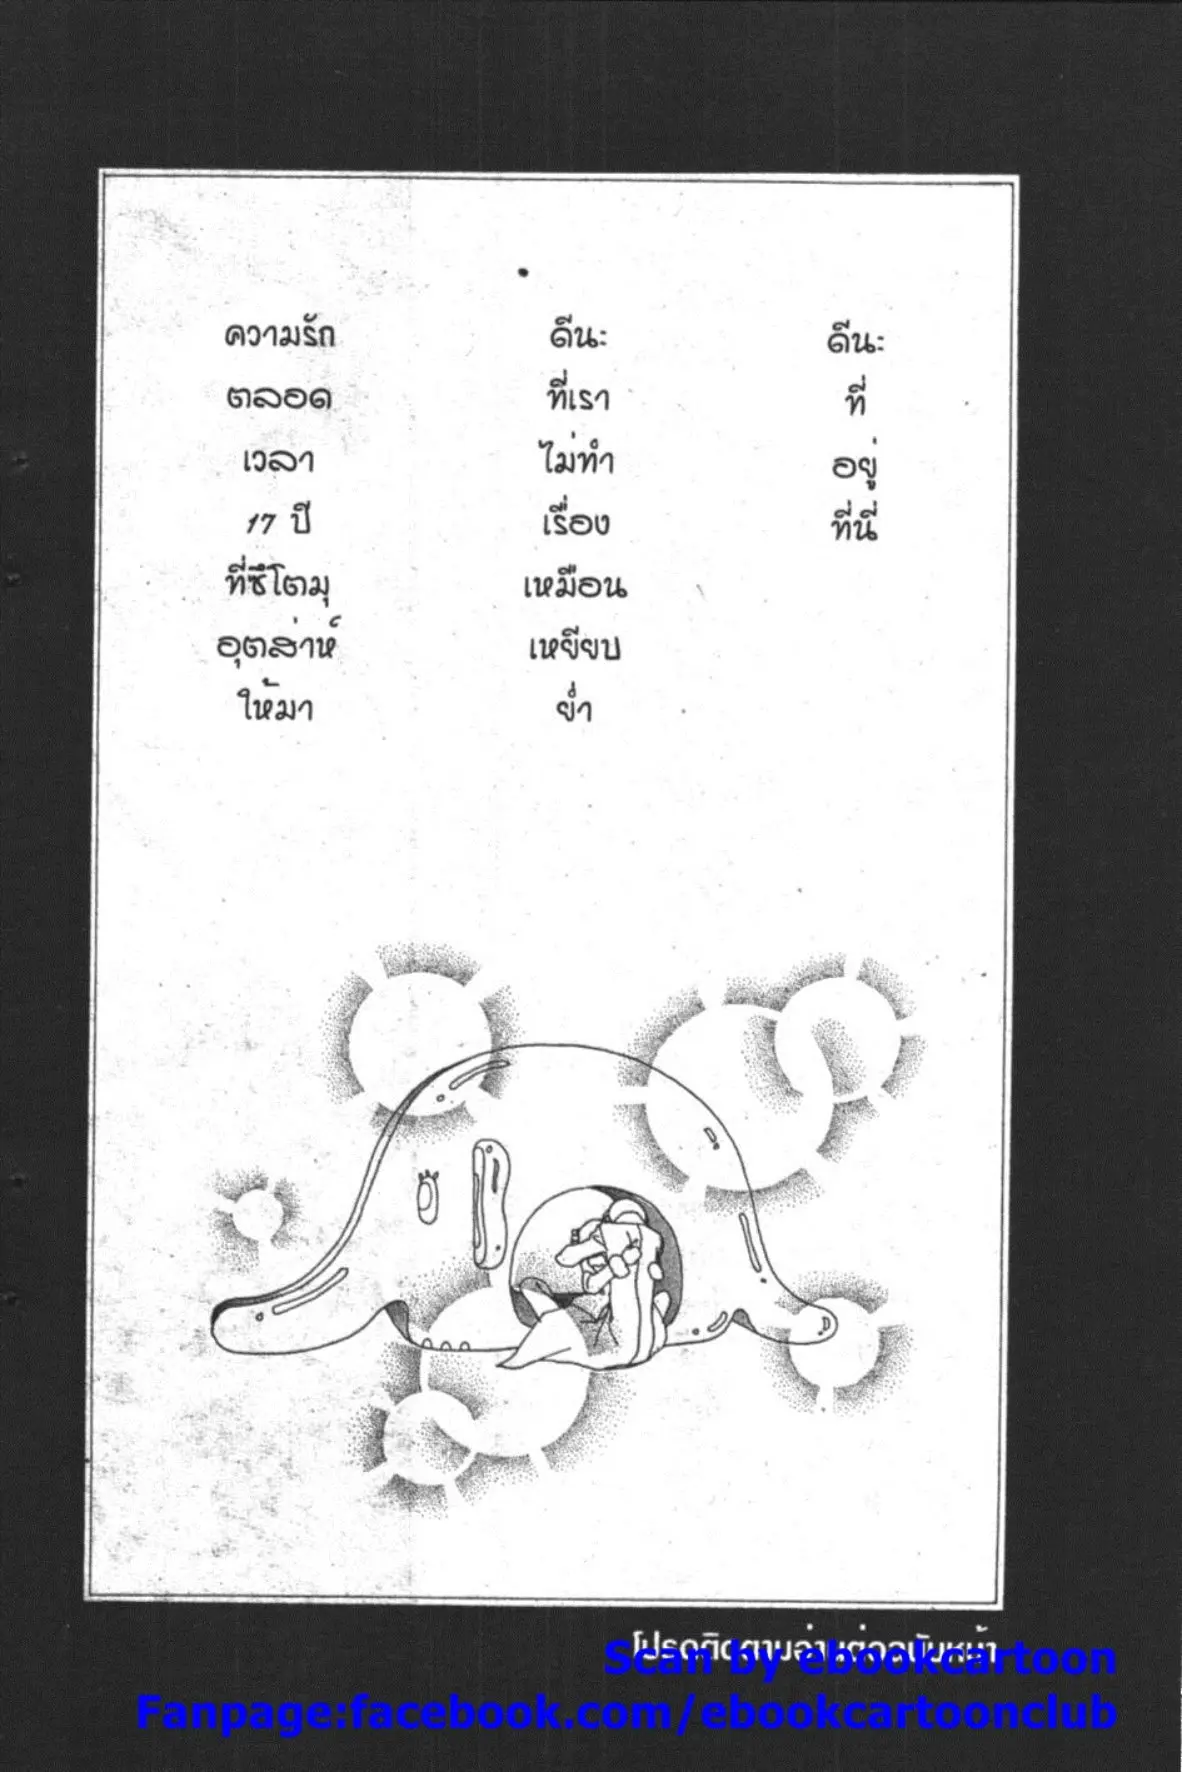 ดีนะ
ที่
อยู่
ที่นี่
ดีนะ
ที่เรา
ไม่ทำ
เรื่อง
เหมือน
เหยียบ
ย่ำ
ความรัก
ตลอด
เวลา
17 ปี
ที่ซึโตมุ
อุตส่าห์
ให้มา
โปรดติดตามอ่านต่อฉบับหน้า
Scan by ebookcartoon
Fanpage:facebook.com/ebookcartoonclub